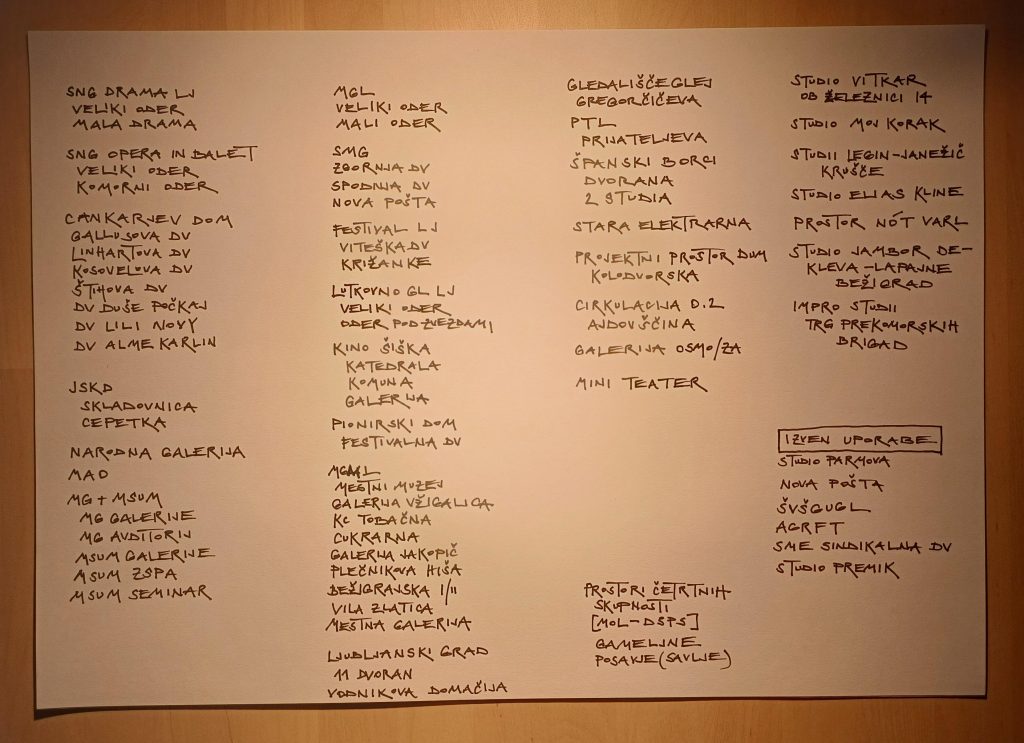 SNG DRAMA LJ
VELIKI ODER
MALA DRAMA
SNG OPERA IN BALET
VELIKI ODER
KOMORNI ODER
CANKARJEV DOM
GALLUSOVA DV
LINHARTOVA DV
KOSOVELOVA DV
ŠTIHOVA DV
DV DUŠE POČKAJ
DV LILI NOVY
DV ALME KARLIN
JSKD
SKLADOVNICA
CEPETKA
NARODNA GALERIJA
MAO
MG + MSUM
MG GALERIJE
MG AVDITORIJ
MSUM GALERIJE
MSUM ZSPA
MSUM SEMINAR
MGL
VELIKI ODER
MALI ODER
SMG
ZGORNJA DV
SPODNJA DV
NOVA POŠTA
FESTIVAL LJ
VITEŠKA DV
KRIŽANKE
LUTKOVNO GL LJ
VELIKI ODER
ODER POD ZVEZDAMI
KINO ŠIŠKA
KATEDRALA
KOMUNA
GALERIJA
PIONIRSKI DOM
FESTIVALNA DV
MGML
MESTNI MUZEJ
GALERIJA VŽIGALICA
KC TOBAČNA
CUKRARNA
GALERIJA JAKOPIČ
PLEČNIKOVA HIŠA
BEŽIGRAJSKA 1/11
VILA ZLATICA
MESTNA GALERIJA
LJUBLJANSKI GRAD
11 DVORAN
VODNIKOVA DOMAČIJA
GLEDALIŠČE GLEJ
GREGORČIČEVA
PTL
PRIJATELJEVA
ŠPANSKI BORCI
DVORANA
2 STUDIA
STARA ELEKTRARNA
PROJEKTNI PROSTOR DUM
KOLODVORSKA
CIRKULACIJA 0.2
AJDOVŠČINA
GALERIJA OSMO/ZA
MINI TEATER
PROSTORI ČETRTNIH
SKUPNOSTI
[MOL-DSPS]
GAMELJNE
POSAVJE (SAVLJE)
STUDIO VITKAR
OB ŽELEZNICI 14
STUDIO MOJ KORAK
STUDII LEGIN-JANEŽIČ
KRUŠČE
STUDIO ELIAS KLINE
PROSTOR NÓT VARL
STUDIO JAMBOR DE-
KLEVA-LAPAJNE
BEŽIGRAD
IMPRO STUDII
TRG PREKOMORSKIH
BRIGAD
IZVEN UPORABE
STUDIO PARMOVA
NOVA POŠTA
ŠVŠGUGL
AGRFT
SME SINDIKALNA DV
STUDIO PREMIK